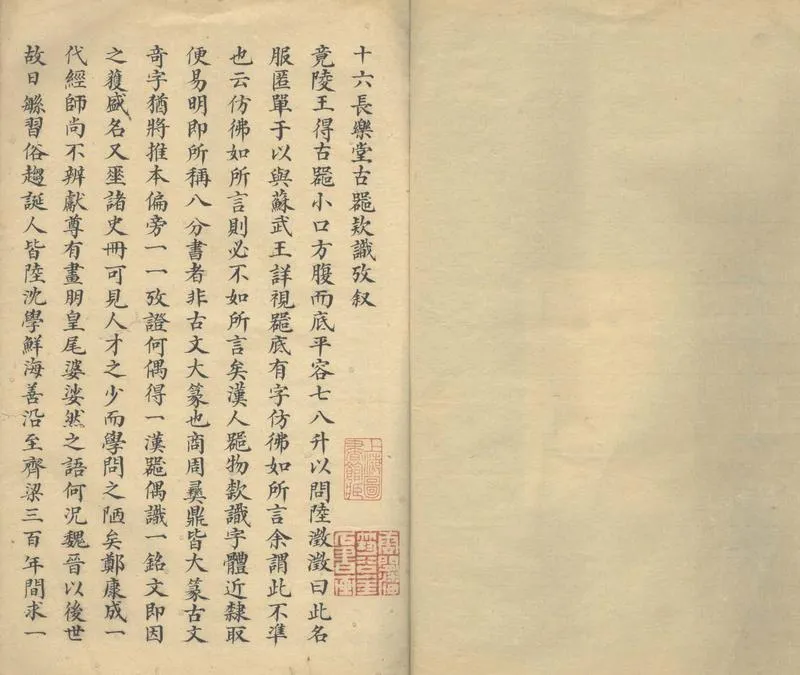 十六長樂堂古器欵識攷叙
竟陵王得古器小口方腹而底平容七八升以問陸澂澂曰此名
服匿單于以與蘇武王詳視器底有字仿彿如所言余謂此不準
也云仿彿如所言則必不如所言矣漢人器物欵識字體近隸取
便易明即所稱八分書者非古文大篆也商周彝鼎皆大篆古文
奇字猶將推本偏旁一一攷證何偶得一漢器偶識一銘文即因
之獲盛名又垩諸史冊可見人才之少而學問之陋矣鄭康成一
代經師尚不辨獻尊有畫朋皇尾婆娑然之語何況魏晉以後世
故日緐習俗趨誕人皆陸沈學鮮海善沿至齊梁三百年間求一
上海圖書館藏